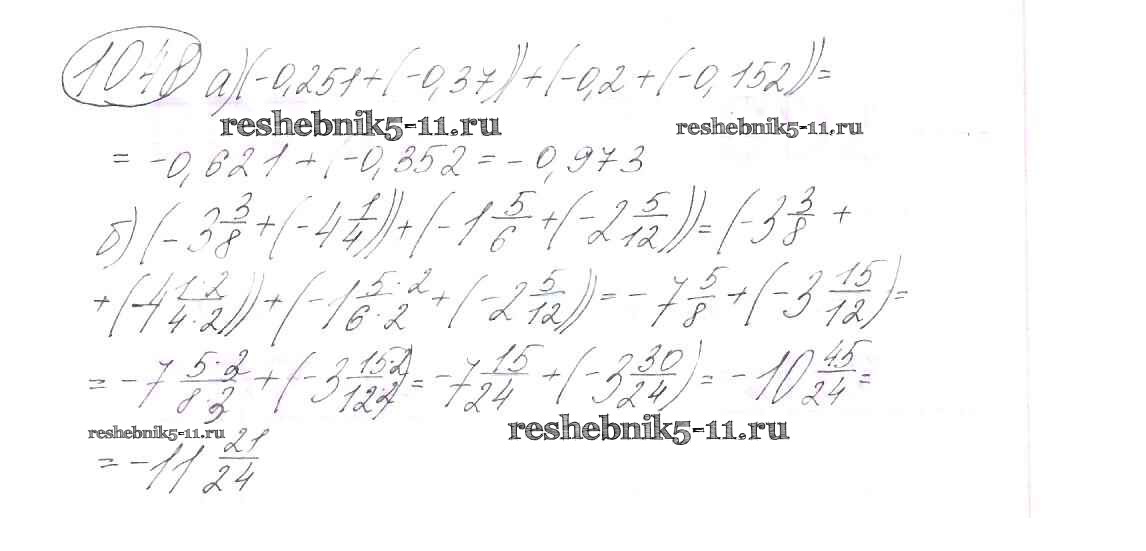 1048 а) (-0,251 + (-0,37)) + (-0,2 + (-0,152)) =
reshebnik5-11.ru reshebnik5-11.ru
= -0,621 + (-0,352 = -0,973
б) (-3 3/8 + (-4 1/4)) + (-1 5/6 + (-2 5/12)) = (-3 3/8 +
+ (-4 1·2/4·2)) + (-1 5·2/6·2 + (-2 5/12)) = -7 5/8 + (-3 15/12) =
= -7 5·3/8·3 + (-3 15·2/12·2) = -7 15/24 + (-3 30/24) = -10 45/24 =
reshebnik5-11.ru reshebnik5-11.ru
= -11 21/24